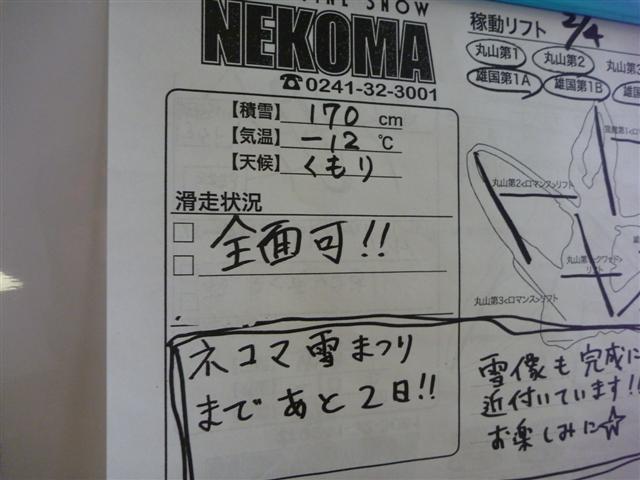 SNOW
NEKOMA
☎0241-32-3001
稼動リフト 2/4
丸山第1 丸山第2 丸山第3
雄国第1A 雄国第1B
【積雪】 170 cm
【気温】 -12 ℃
【天候】 くもり
滑走状況
全面可!!
丸山第2<ロマンス>リフト
丸山第3<ロマンス>リフト
ネコマ雪まつり
まであと2日!!
雪像も完成に
近付いています!!
お楽しみに☆